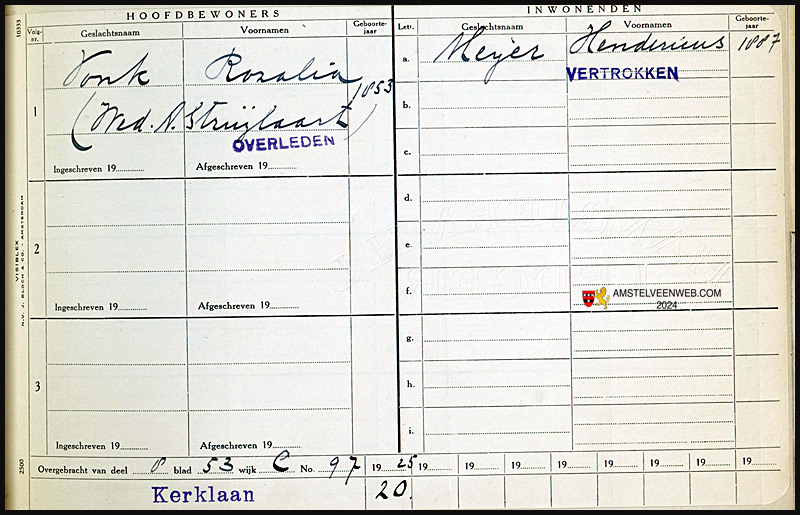 HOOFDBEWONERS
INWONENDEN
Volg-nr. Geslachtsnaam Voornamen Geboorte-jaar
Letr. Geslachtsnaam Voornamen Geboorte-jaar
1 Vonk Rozalia 1853
(Wed. A. Struijlaart)
OVERLEDEN
Ingeschreven 19 Afgeschreven 19
2
Ingeschreven 19 Afgeschreven 19
3
Ingeschreven 19 Afgeschreven 19
a. Meijer Hendericus 1887
VERTROKKEN
b.
c.
d.
e.
f.
AMSTELVEENWEB.COM
2024
g.
h.
i.
Overgebracht van deel 8 blad 53 wijk C No. 97 1925 19 19 19 19 19 19 19 19
Kerklaan 20.
10333
VISIBLEX
N.V. J. BLOCH & CO. - AMSTERDAM
2500